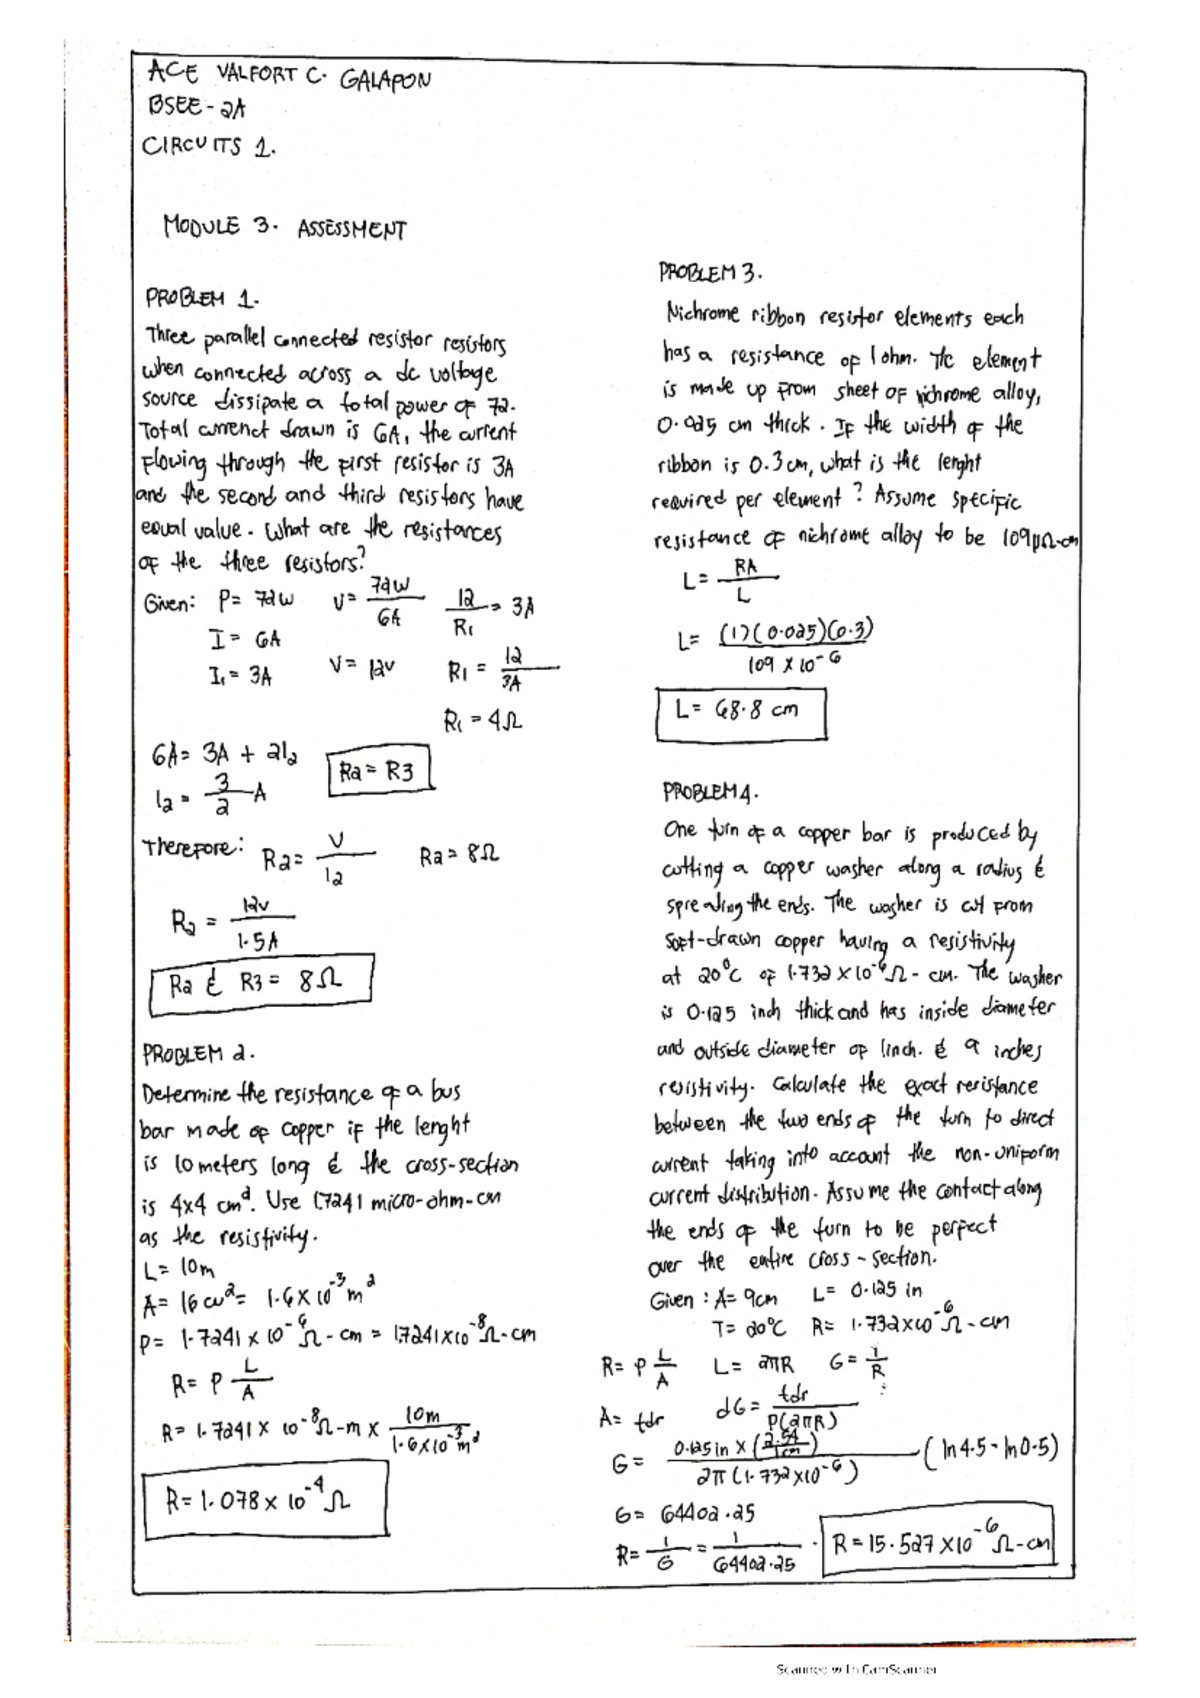 ACE VALFORT C. GALAPON
BSEE-2A
CIRCUITS 1.
MODULE 3. ASSESSMENT
PROBLEM 1.
Three parallel connected resistor resistors
when connected across a dc voltage
source dissipate a total power of 72.
Total currenct drawn is 6A, the current
flowing through the first resistor is 3A
and the second and third resistors have
equal value. What are the resistances
of the three resistors?
Given: P= 72W V= 72W/6A 12/R₁ = 3A
I = 6A
I₁ = 3A V= 12v R1 = 12/3A
R₁ = 4Ω
6A= 3A + 2I₂ R2 = R3
I₂ = 3/2 A
Therefore: R2= V/I2 R2= 8Ω
R₂ = 12v/1.5A
R2 & R3 = 8Ω
PROBLEM 2.
Determine the resistance of a bus
bar made of copper if the lenght
is 10 meters long & the cross-section
is 4x4 cm². Use 1.7241 micro-ohm-cm
as the resistivity.
L= 10m
A= 16 cm²= 1.6 x 10⁻³ m²
P= 1.7241 x 10⁻⁶ Ω - cm = 1.7241x10⁻⁸ Ω - cm
R= P L/A
R= 1.7241 x 10⁻⁸ Ω-m x 10m/1.6x10⁻³m²
R= 1.078 x 10⁻⁴ Ω
PROBLEM 3.
Nichrome ribbon resistor elements each
has a resistance of 1 ohm. The element
is made up from sheet of nichrome alloy,
0.025 cm thick. If the width of the
ribbon is 0.3 cm, what is the lenght
required per element? Assume specific
resistance of nichrome alloy to be 109μΩ-cm
L= RA/L
L= (1)(0.025)(0.3)/109 x 10⁻⁶
L= 68.8 cm
PROBLEM 4.
One turn of a copper bar is produced by
cutting a copper washer along a radius &
spreading the ends. The washer is cut from
soft-drawn copper having a resistivity
at 20°C of 1.732 x 10⁻⁶ Ω - cm. The washer
is 0.125 inch thick and has inside diameter
and outside diameter of 1inch. & 9 inches
resistivity. Calculate the exact resistance
between the two ends of the turn to direct
current taking into account the non-uniform
current distribution. Assume the contact along
the ends of the turn to be perfect
over the entire cross-section.
Given: A= 9cm L= 0.125 in
T= 20°C R= 1.732x10⁻⁶ Ω - cm
R= P L/A L= 2πR G= 1/R
A= tdr dG= tdr/P(2πR)
G= 0.125in x (2.54/1cm)/2π(1.732x10⁻⁶) (ln4.5 - ln0.5)
G= 64402.25
R= 1/G = 1/64402.25 . R= 15.527 x10⁻⁶ Ω-cm
Scanned with CamScanner